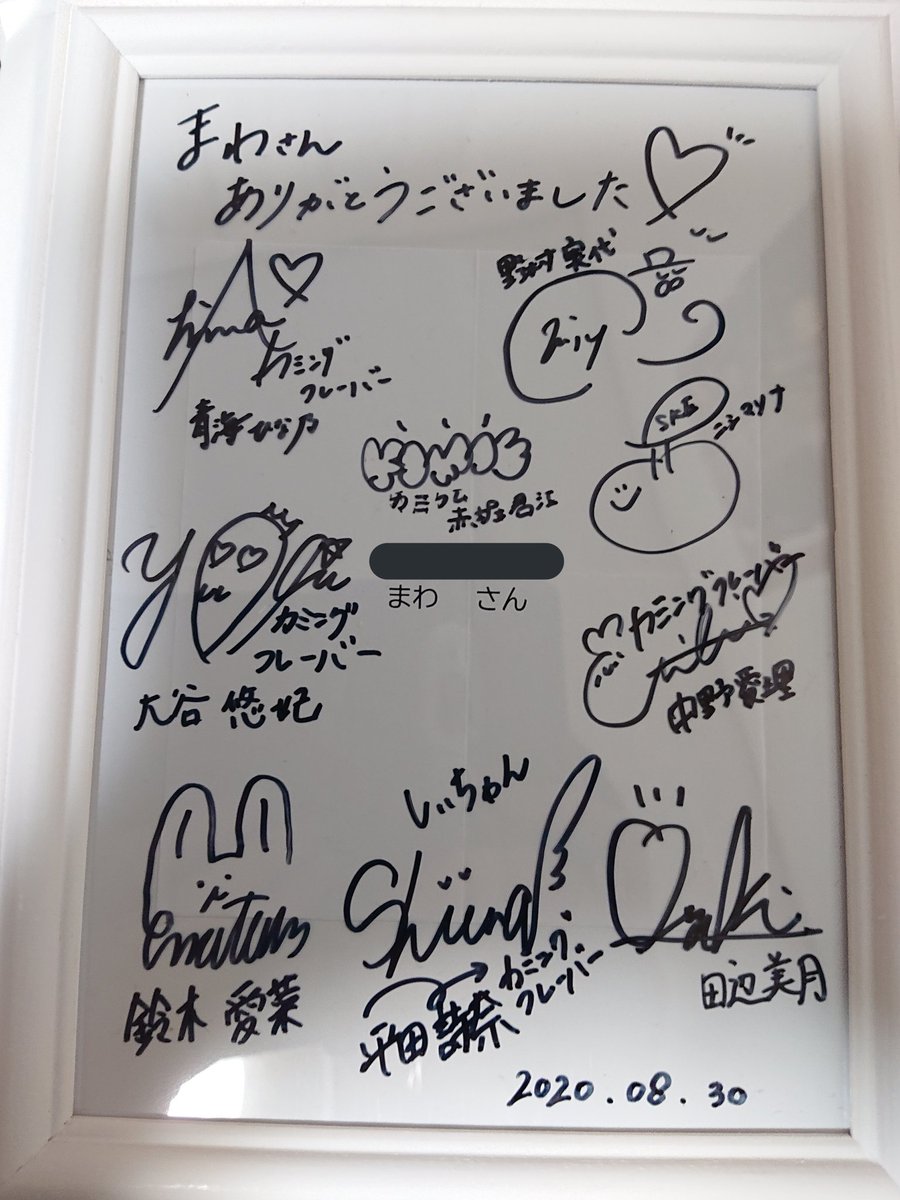 まわさん
ありがとうございました
カミング
フレーバー
青海ひな乃
野村実代
カミクム
赤堀君江
SKE
ニシマリナ
まわ さん
カミング
フレーバー
大谷 悠妃
カミングフレーバー
中野愛理
鈴木 愛菜
しぃちゃん
Shiina
カミング
フレーバー
平田 詩奈
田辺美月
2020.08.30